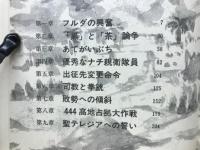 第一章 フルダの興奮 7
第二章 「薫」と「茶」論争 30
第三章 あてがいぶち 58
第四章 優秀なナチ親衛隊員 82
第五章 出征先変更命令 104
第六章 司教と拳銃 125
第七章 敗勢への傾斜 152
第八章 444高地占拠大作戦 179
第九章 聖テレジアへの誓い 204